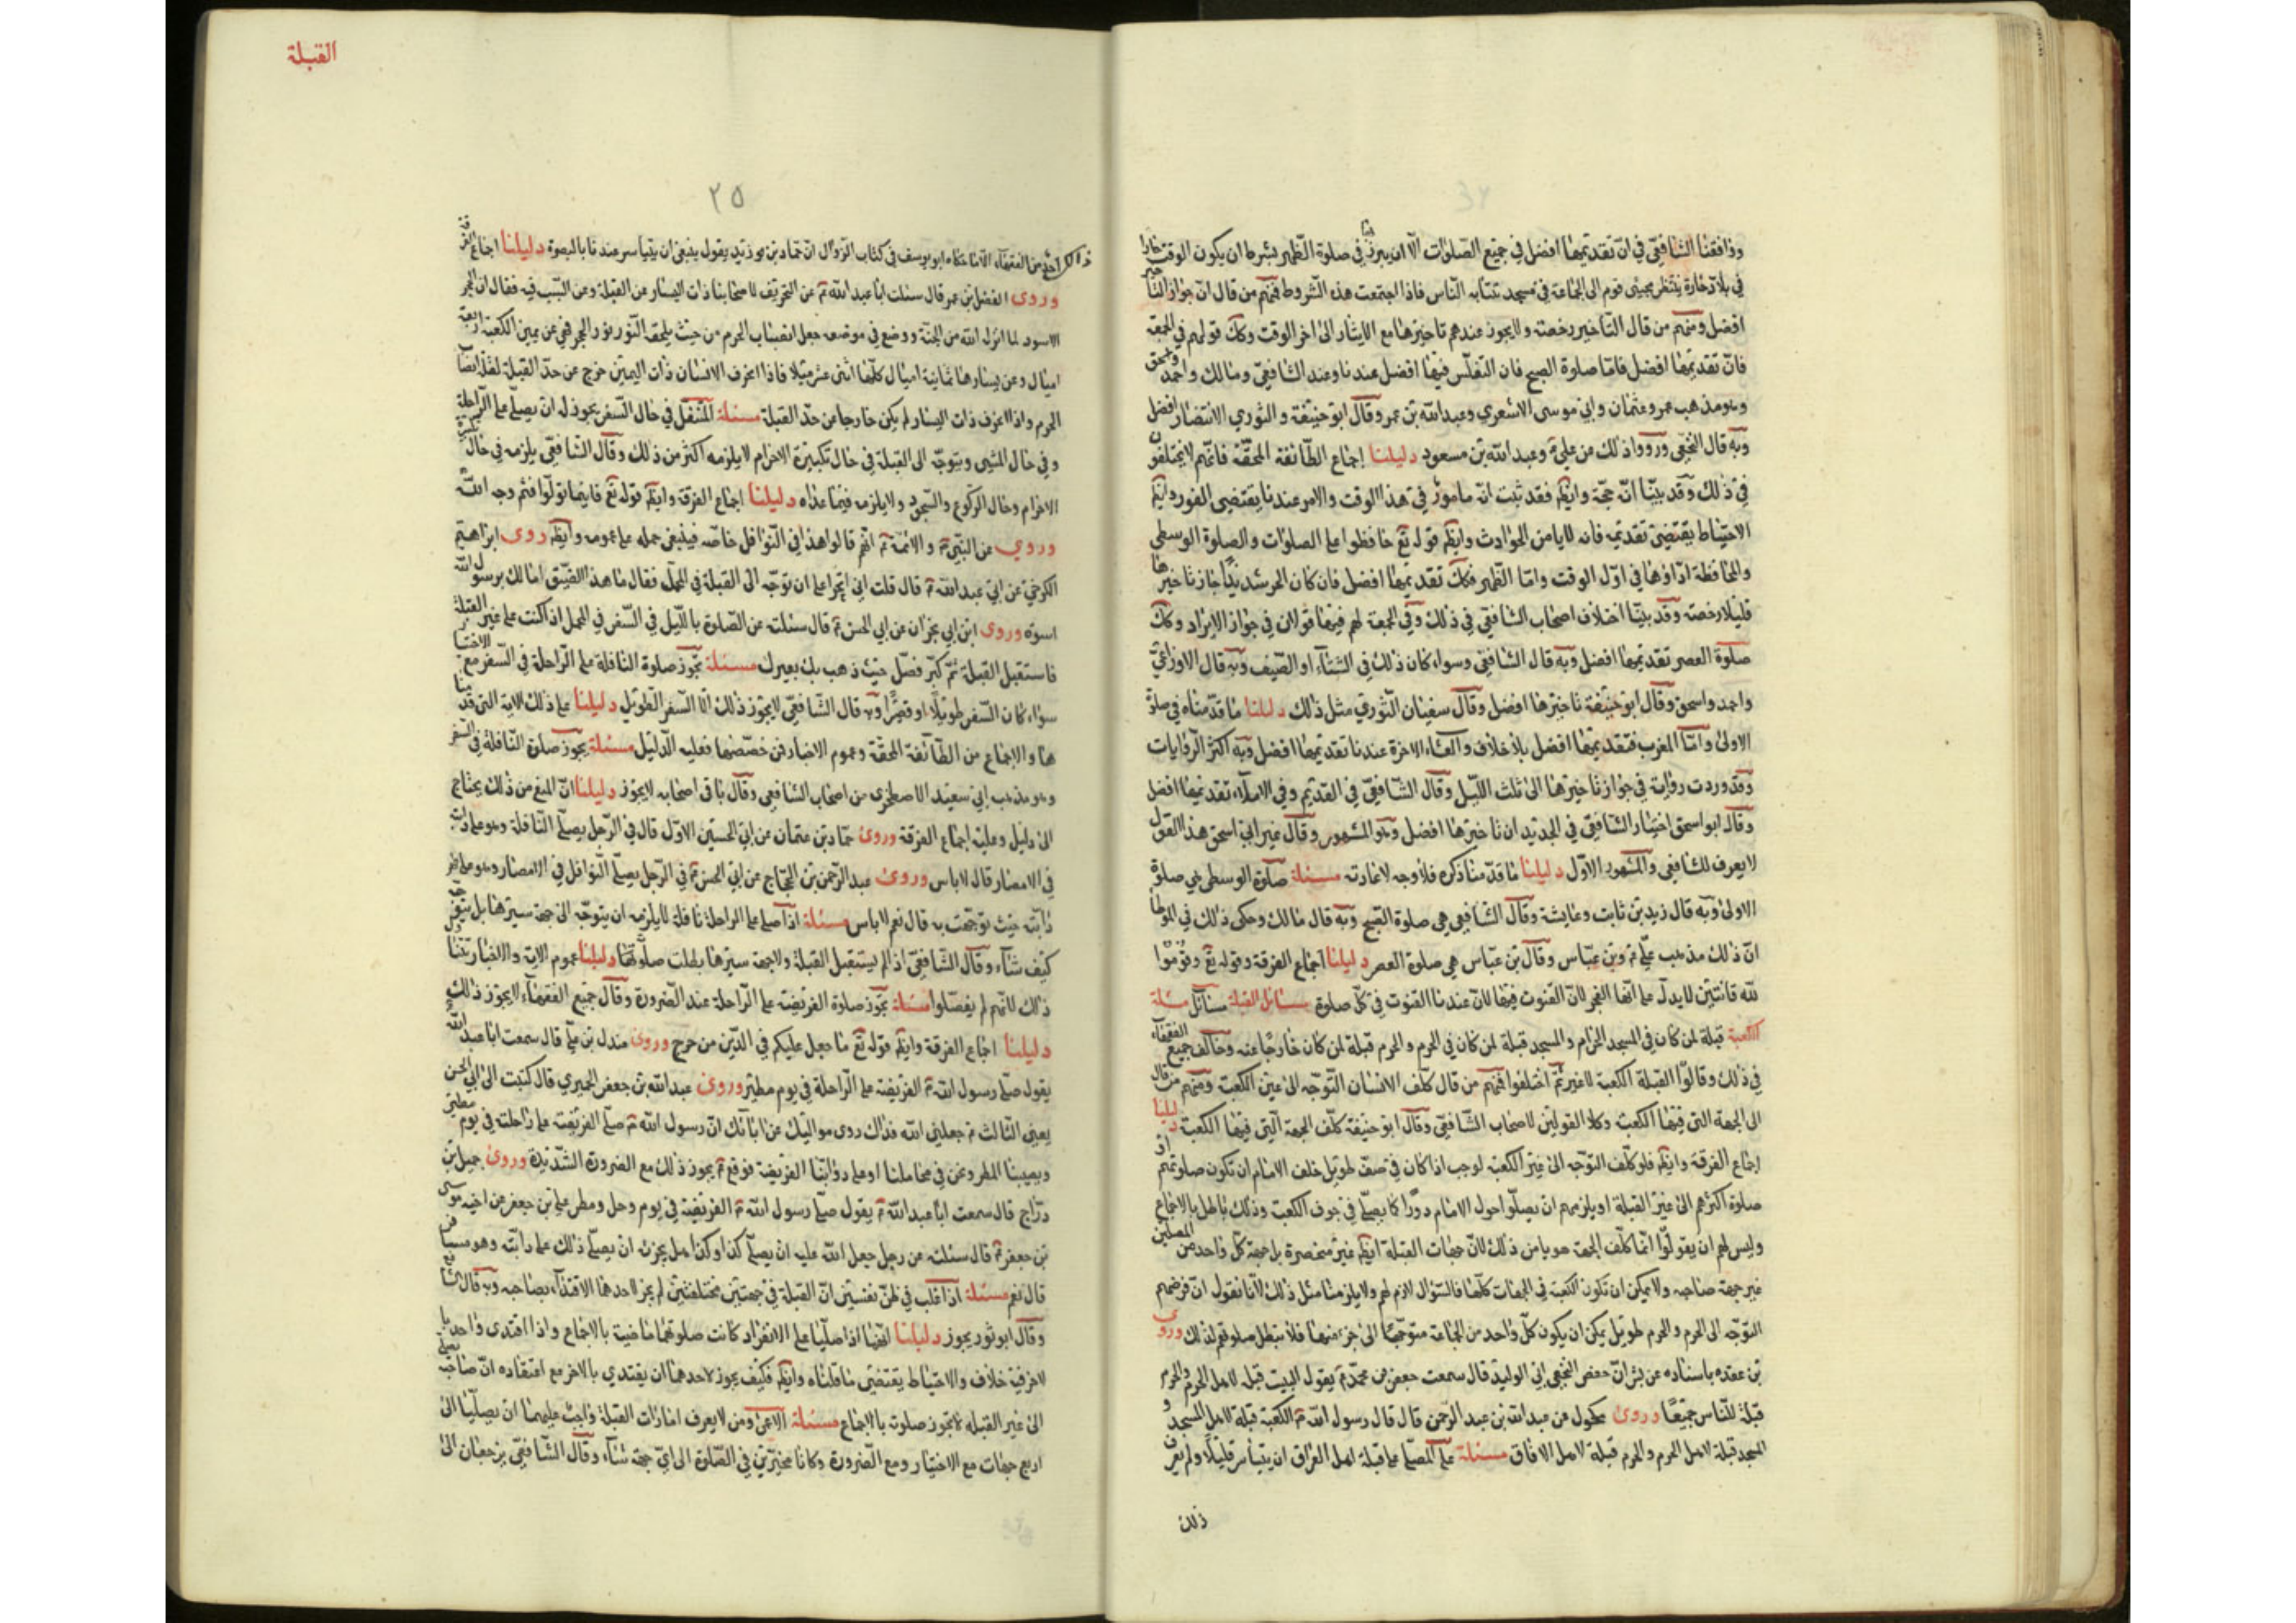 وذافقنا الشافعي في ان تقديمها افضل في جميع الصلوات الا ان يبرد بها في صلوة الظهر بشرط ان يكون الوقت حارا
في بلاد حارة ينتظر مجيئ قوم الى الجماعة في مسجد تنتابه الناس فاذا اجتمعت هذه الشروط فمنهم من قال ان جواز التاخير
افضل ومنهم من قال التاخير رخصة ولا يجوز عندهم تاخيرها مع الايثار الى اخر الوقت وكك قولهم في الجمعة
فان تقديمها افضل فاما صلوة الصبح فان التغلس فيها افضل عندنا وعند الشافعي ومالك واحمد واسحق
وهو مذهب عمر وعثمان وابي موسى الاشعري وعبد الله بن عمر وقال ابو حنيفة والثوري الاسفار افضل
وبه قال النخعي ورووا ذلك عن علي ؏ وعبد الله بن مسعود دليلنا اجماع الطائفة المحقة فانهم لا يختلفون
في ذلك وقد بينا انه حجة وايضم فقد ثبت انه مامور في هذا الوقت والامر عندنا يقتضى الفور وايضم
الاحتياط يقتضى تقديمه فانه لا يامن الحوادث وايضم قوله تع حافظوا على الصلوات والصلوة الوسطى
والمحافظة اداؤها في اول الوقت واما الظهر فكك تقديمها افضل فان كان الحر شديدا جاز تاخيرها
قليلا رخصة وقد بينا اختلاف اصحاب الشافعي في ذلك وفي الجمعة لهم فيها قولان في جواز الابراد وكك
صلوة العصر تقديمها افضل وبه قال الشافعي وسواء كان ذلك في الشتاء او الصيف وبه قال الاوزاعي
واحمد واسحق وقال ابو حنيفة تاخيرها افضل وقال سفيان الثوري مثل ذلك دليلنا ما قدمناه في صلوة
الاولى واما المغرب فتقديمها افضل بلا خلاف والعشاء الاخرة عندنا تقديمها افضل وبه اكثر الروايات
وقد وردت رواية في جواز تاخيرها الى ثلث الليل وقال الشافعي في القديم وفي الاملاء تقديمها افضل
وقال ابو اسحق اختيار الشافعي في الجديد ان تاخيرها افضل وهو المشهور وقال غير ابي اسحق هذا القول
لا يعرف للشافعي والمشهور الاول دليلنا ما قدمنا ذكره فلا وجه لاعادته مسئلة صلوة الوسطى هي صلوة
الاولى وبه قال زيد بن ثابت وعايشة وقال الشافعي هي صلوة الصبح وبه قال مالك وحكى ذلك في الموطأ
ان ذلك مذهب علي ؏ وبن عباس وقال بن عباس هي صلوة العصر دليلنا اجماع الفرقة وقوله تع وقوموا
لله قانتين لا يدل على انها الفجر لان القنوت فيها لان عندنا القنوت في كل صلوة مسائل القبلة مسائل مسئلة
الكعبة قبلة لمن كان في المسجد الحرام والمسجد قبلة لمن كان في الحرم والحرم قبلة لمن كان خارجا عنه وخالف جميع الفقهاء
في ذلك وقالوا القبلة الكعبة لا غير ثم اختلفوا فمنهم من قال كلف الانسان التوجه الى عين الكعبة ومنهم من قال
الى الجهة التي فيها الكعبة وكلا القولين لاصحاب الشافعي وقال ابو حنيفة كلف الجهة التي فيها الكعبة دليلنا
اجماع الفرقة وايضم فلو كلف التوجه الى عين الكعبة لوجب اذا كان في صف طويل خلف الامام ان تكون صلوتهم او
صلوة اكثرهم الى غير القبلة او يلزمهم ان يصلوا حول الامام دورا كما يصلى في جوف الكعبة وذلك باطل بالاجماع
وليس لهم ان يقولوا انما كلف الجهة هربا من ذلك لان جهات القبلة ايضم غير منحصرة بل جهة كل واحد من المصلين
غير جهة صاحبه ولا يمكن ان تكون الكعبة في الجهات كلها فالسؤال لازم لهم ولا يلزمنا مثل ذلك لانا نقول ان فرضهم
التوجه الى الحرم والحرم طويل يمكن ان يكون كل واحد من الجماعة متوجها الى جزء منها فلا تبطل صلوتهم لذلك وروى
بن عقده باسناده عن بشر ان جعفر الجعفي ابي الوليد قال سمعت جعفر بن محمد ؏ يقول البيت قبلة لاهل الحرم والحرم
قبلة للناس جميعا وروى مكحول عن عبد الله بن عبد الرحمن قال قال رسول الله ؐ الكعبة قبلة لاهل المسجد و
المسجد قبلة لاهل الحرم والحرم قبلة لاهل الافاق مسئلة على المصلى على قبلة اهل العراق ان يتياسر قليلا ولم يعرف
ذلك
القبلة
٢٥
ذلك احد من الفقهاء الا ما حكاه ابو يوسف في كتاب الزوال ان حماد بن زيد يقول ينبغي ان يتياسر عندنا بالبصرة دليلنا اجماع الفرقة
وروى المفضل بن عمر قال سئلت ابا عبد الله ؏ عن التحريف لاصحابنا ذات اليسار عن القبلة وعن السبب فيه فقال ان الحجر
الاسود لما انزل الله من الجنة ووضع في موضعه جعل انصاب الحرم من حيث يلحقه النور نور الحجر فهي عن يمين الكعبة اربعة
اميال وعن يسارها ثمانية اميال كلها اثنى عشر ميلا فاذا انحرف الانسان ذات اليمين خرج عن حد القبلة لقلة انصاب
الحرم واذا انحرف ذات اليسار لم يكن خارجا من حد القبلة مسئلة المتنفل في حال السفر يجوز له ان يصلي على الراحلة
وفي حال المشي ويتوجه الى القبلة في حال تكبيرة الاحرام لا يلزمه اكثر من ذلك وقال الشافعي يلزمه في حال تكبيرة
الاحرام وحال الركوع والسجود ولا يلزمه فيما عداه دليلنا اجماع الفرقة وايضم قوله تع فاينما تولوا فثم وجه الله
وروي عن النبي ؐ والائمة ؏ انهم قالوا هذا في النوافل خاصة فينبغي حمله على عمومه وايضم روى ابراهيم
الكرخي عن ابي عبد الله ؏ قال قلت اني اتحرا على ان توجه الى القبلة في المحمل فقال ما هذا الضيق اما لك برسول الله
اسوة وروى ابن ابي نجران عن ابي الحسن ؏ قال سئلته عن الصلوة بالليل في السفر في المحمل اذا كنت على غير القبلة
فاستقبل القبلة ثم كبر فصل حيث ذهب بك بعيرك مسئلة تجوز صلوة النافلة على الراحلة في السفر مع الاختيار
سواء كان السفر طويلا او قصيرا وبه قال الشافعي لا يجوز ذلك الا السفر الطويل دليلنا على ذلك الاية التي قدمنا
ها والاجماع من الطائفة المحقة وعموم الاخبار فمن خصصها فعليه الدليل مسئلة يجوز صلوة النافلة في السفر
وهو مذهب ابي سعيد الاصطخري من اصحاب الشافعي وقال باقي اصحابه لا يجوز دليلنا ان المنع من ذلك يحتاج
الى دليل وعليه اجماع الفرقة وروى حماد بن عثمان عن ابي الحسين الاول قال في الرجل يصلى النافلة وهو على دابته
في الامصار قال لا باس وروى عبد الرحمن بن الحجاج عن ابي الحسن ؏ في الرجل يصلى النوافل في الامصار وهو على ظهر
دابته حيث توجهت به قال نعم لا باس مسئلة اذا صلى على الراحلة نافلة لا يلزمه ان يتوجه الى جهة سيرها بل يتوجه
كيف شاء وقال الشافعي اذا لم يستقبل القبلة ولا جهة سيرها بطلت صلوتها دليلنا عموم الاية والاخبار تتناول
ذلك لانهم لم يفصلوا مسئلة تجوز صلوة الفريضة على الراحلة عند الضرورة وقال جميع الفقهاء لا يجوز ذلك
دليلنا اجماع الفرقة وايضم قوله تع ما جعل عليكم في الدين من حرج وروى مندل بن علي قال سمعت ابا عبد الله
يقول صلى رسول الله ؐ الفريضة على الراحلة في يوم مطير وروى عبد الله بن جعفر الحميري قال كتبت الى ابي الحسن
يعنى الثالث ؏ جعلني الله فداك روى مواليك عن ابائك ان رسول الله ؐ صلى الفريضة على راحلته في يوم مطير
ويصيبنا المطر ونحن في محاملنا او على دوابنا الفريضة فوقع ؏ يجوز ذلك مع الضرورة الشديدة وروى جميل بن
دراج قال سمعت ابا عبد الله ؏ يقول صلى رسول الله ؐ الفريضة في يوم وحل ومطر علي بن جعفر عن اخيه موسى
بن جعفر ؏ قال سئلته عن رجل جعل الله عليه ان يصلى كذا وكذا هل يجزئ ان يصلى ذلك على دابته وهو مسافر
قال نعم مسئلة اذا غلب في ظن نفسين ان القبلة في جهتين مختلفتين لم يجز لاحدهما الاقتداء بصاحبه وبه قال الشافعي
وقال ابو ثور يجوز دليلنا انهما اذا صليا على الانفراد كانت صلوتهما ماضية بالاجماع واذا اقتدى واحد بالاخر
ففيه خلاف والاحتياط يقتضى ما قلناه وايضم فكيف يجوز لاحدهما ان يقتدي بالاخر مع اعتقاده ان صاحبه يصلى
الى غير القبله لا تجوز صلوته بالاجماع مسئلة الاعمى ومن لا يعرف امارات القبلة واجب عليهما ان يصليا الى
اربع جهات مع الاختيار ومع الضرورة وكانا مخيرين في الصلوة الى اي جهة شاء وقال الشافعي يرجعان الى